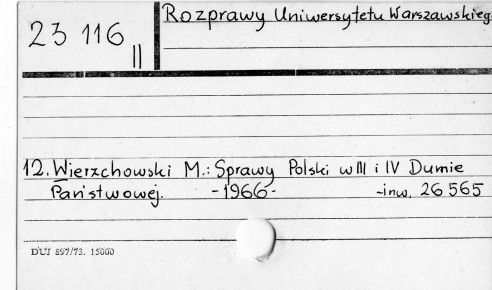 23 116 II
Rozprawy Uniwersytetu Warszawskieg
12. Wierzchowski M.: Sprawy Polski w III i IV Dumie
Państwowej. -1966- -inw. 26 565
DUJ 897/73. 15000